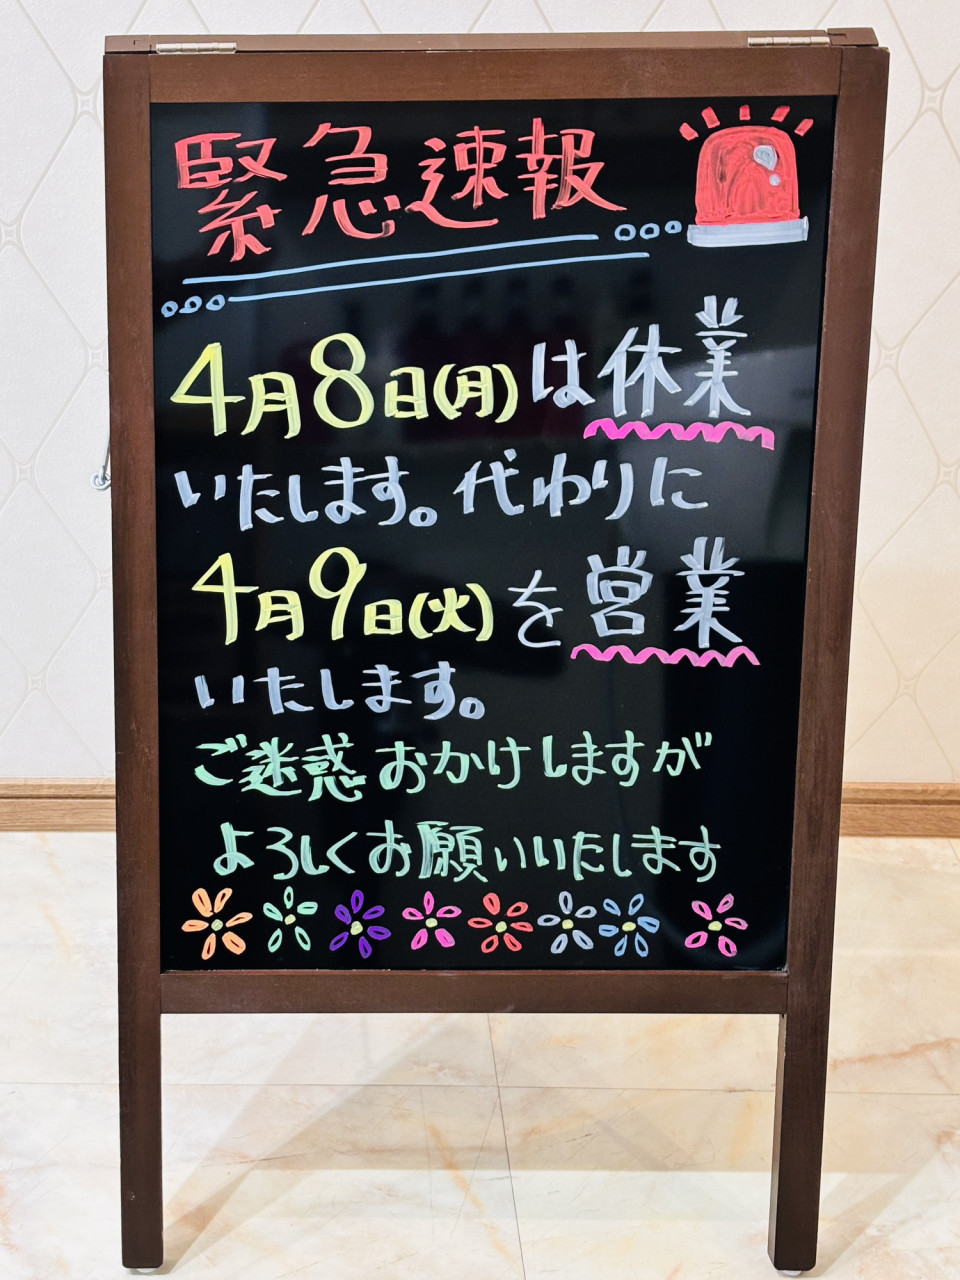 緊急速報
4月8日(月)は休業
いたします。代わりに
4月9日(火)を営業
いたします。
ご迷惑おかけしますが
よろしくお願いいたします